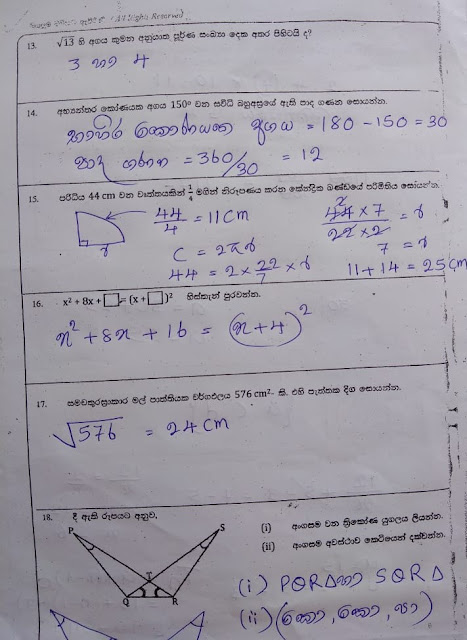 All Rights Reserved
13. √13 හි අගය කුමන අනුයාත පූර්ණ සංඛ්‍යා දෙක අතර පිහිටයි ද?
3 හා 4
14. අභ්‍යන්තර කෝණයක අගය 150° වන සවිධි බහුඅස්‍රයේ ඇති පාද ගණන සොයන්න.
බාහිර කෝණයක අගය = 180 - 150 = 30
පාද ගණන = 360/30 = 12
15. පරිධිය 44 cm වන වෘත්තයකින් 1/4 මගින් නිරූපණය කරන කේන්ද්‍රික ඛණ්ඩයේ පරිමිතිය සොයන්න.
44/4 = 11 cm
r
C = 2πr
44 = 2 × 22/7 × r
2
44 × 7 / 22 × 2 = r
7 = r
11 + 14 = 25 cm
16. x² + 8x + □ = (x + □)² හිස්තැන් පුරවන්න.
x² + 8x + 16 = (x + 4)²
17. සමචතුරස්‍රාකාර මල් පාත්තියක වර්ගඵලය 576 cm² කි. එහි පැත්තක දිග සොයන්න.
√576 = 24 cm
18. දී ඇති රූපයට අනුව,
P S
T
Q R
(i) අංගසම වන ත්‍රිකෝණ යුගලය ලියන්න.
(ii) අංගසම අවස්ථාව කෙටියෙන් දක්වන්න.
(i) PQRΔ හා SQRΔ
(ii) (කෝ, කෝ, පා)